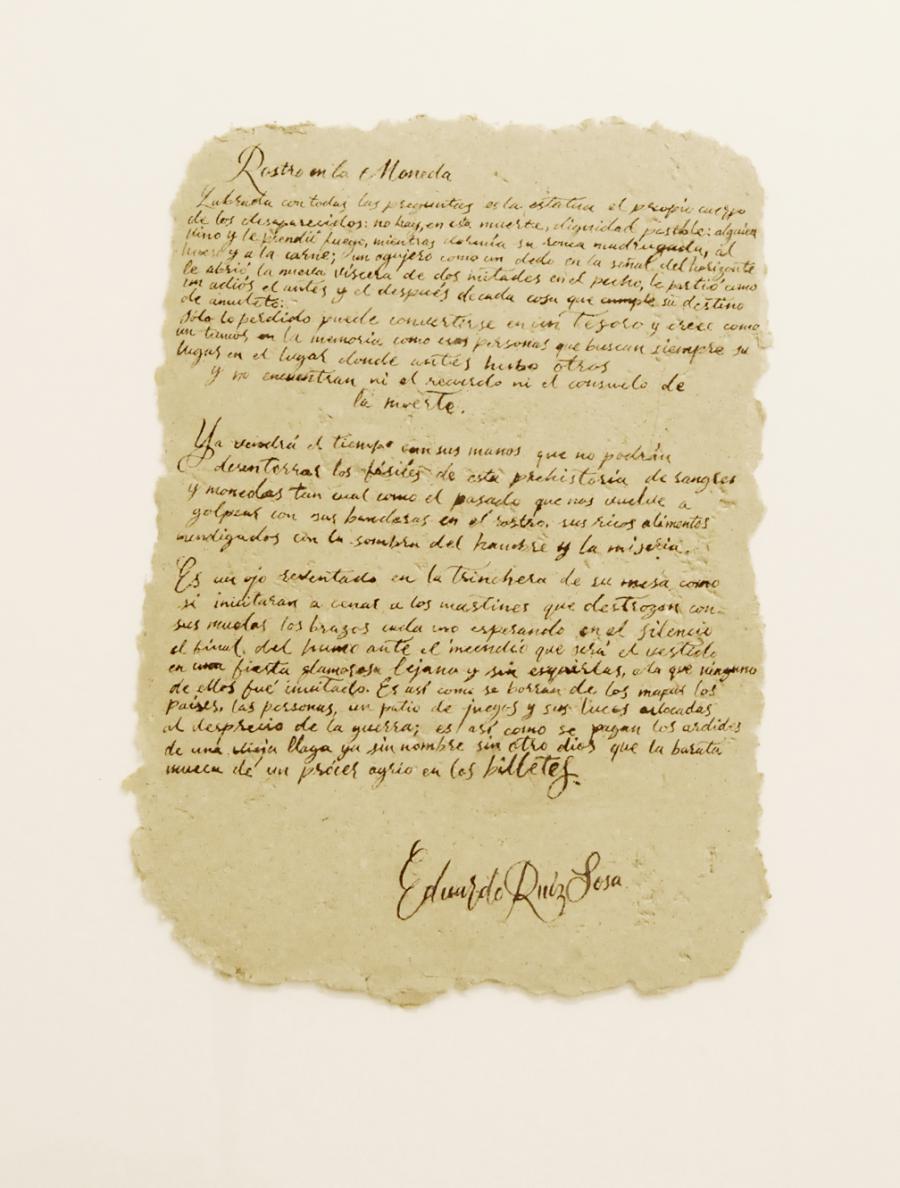 Rostro en la Moneda
Labrada con todas las preguntas es la estatua el propio cuerpo
de los desaparecidos: no hay, en esa muerte, dignidad posible: alguien
vino y le prendió fuego, mientras dormía su ronca madrugada, al
hueso y a la carne; un agujero como un dedo en la señal del horizonte
le abrió la nueva víscera de dos mitades en el pecho, lo partió como
un adiós el antes y el después de cada cosa que cumple su destino
de amuleto:
Sólo lo perdido puede convertirse en un Tesoro y crece como
un tumor en la memoria como esas personas que buscan siempre su
lugar en el lugar donde antes hubo otros
y no encuentran ni el recuerdo ni el consuelo de
la muerte.
Ya vendrá el tiempo con sus manos que no podrán
desenterrar los fósiles de esta prehistoria de sangres
y monedas tan cual como el pasado que nos vuelve a
golpear con sus banderas en el rostro, sus ricos alimentos
mendigados con la sombra del hambre y la miseria.
Es un ojo reventado en la trinchera de su mesa como
si invitaran a cenar a los mastines que destrozan con
sus muelas los brazos cada uno esperando en el silencio
el final del humo ante el incendio que será el vestido
en una fiesta glamorosa lejana y sin esquirlas, a la que ninguno
de ellos fué invitado. Es así como se borran de los mapas los
países, las personas, un patio de juegos y sus luces
al desprecio de la guerra; es así como se pagan los ardides
de una vieja llaga ya sin nombre sin otro dios que la barata
mueca de un prócer agrio en los billetes.
Eduardo Ruiz Sosa